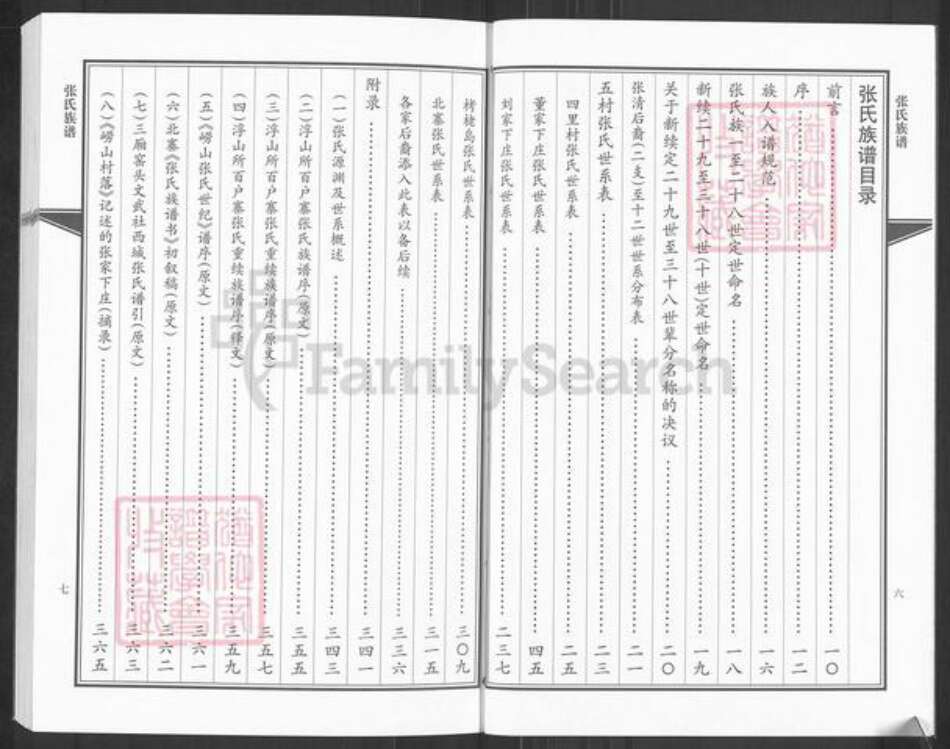 张氏族谱
张氏族谱目录
前言 一〇
序 一二
族人入谱规范 一六
张氏族一至二十八世定世命名 一八
新续二十九至三十八世(十世)定世命名 一九
关于新续定二十九世至三十八世辈分名称的决议 二〇
张清后裔(二支)至十二世世系分布表 二一
五村张氏世系表 二三
四里村张氏世系表 二五
董家下庄张氏世系表 四五
刘家下庄张氏世系表 二三七
六
栲栳岛张氏世系表 三〇九
北寨张氏世系表 三一五
各家后裔添入此表以备后续 三三六
附录 三四一
(一)张氏源渊及世系概述 三四三
(二)浮山所百户寨张氏族谱序(原文) 三五五
(三)浮山所百户寨张氏重续族谱序(原文) 三五七
(四)浮山所百户寨张氏重续族谱序(释文) 三五九
(五)《崂山张氏世纪》谱序(原文) 三六一
(六)北寨《张氏族谱书》初叙稿(原文) 三六二
(七)三厢窑头文武社西城张氏谱引(原文) 三六三
(八)《崂山村落》记述的张家下庄(摘录) 三六五
张氏族谱
七
FamilySearch